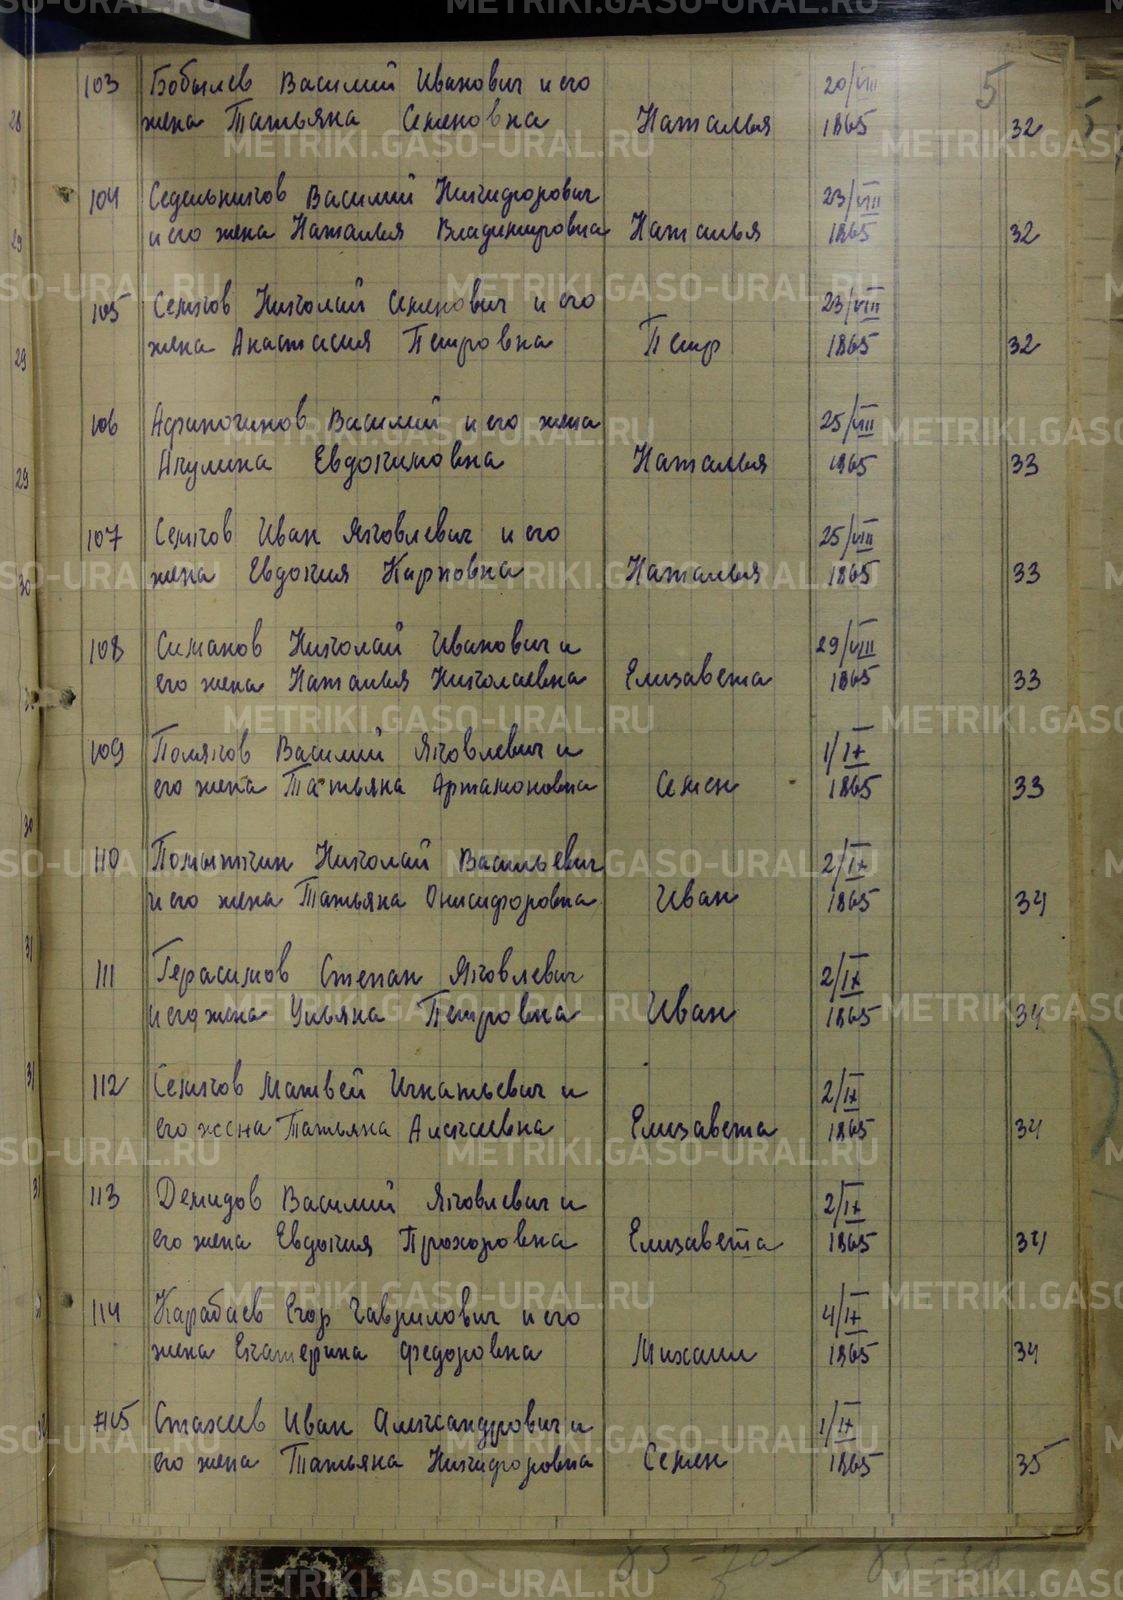 5
103 Бобылев Василий Иванович и его 20/VIII
жена Татьяна Семеновна Наталья 1865 32
104 Седельников Василий Никифорович 23/VIII
и его жена Наталья Владимировна Наталья 1865 32
105 Семков Николай Семенович и его 23/VIII
жена Анастасия Петровна Петр 1865 32
106 Василий и его жена 25/VIII
Акулина Евдокимовна Наталья 1865 33
107 Семков Иван Яковлевич и его 25/VIII
жена Евдокия Карповна Наталья 1865 33
108 Симанов Николай Иванович и 29/VIII
его жена Наталья Николаевна Елизавета 1865 33
109 Поляков Василий Яковлевич и 1/IX
его жена Татьяна Артамоновна Семен 1865 33
110 Николай Васильевич 2/IX
и его жена Татьяна Онисифоровна Иван 1865 34
111 Герасимов Степан Яковлевич 2/IX
и его жена Ульяна Петровна Иван 1865 34
112 Семков Матвей Игнатьевич и 2/IX
его жена Татьяна Алексеевна Елизавета 1865 34
113 Демидов Василий Яковлевич и 2/IX
его жена Евдокия Прохоровна Елизавета 1865 34
114 Карабаев Егор Гаврилович и его 4/IX
жена Екатерина Федоровна Михаил 1865 34
115 Стахеев Иван Александрович и 1/IX
его жена Татьяна Никифоровна Семен 1865 35
METRIKI.GASO-URAL.RU